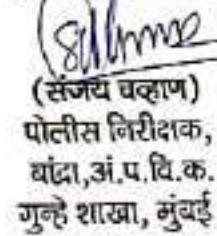 (संजय चव्हाण)
पोलीस निरीक्षक,
बांद्रा,अं.प.वि.क.
गुन्हे शाखा, मुंबई